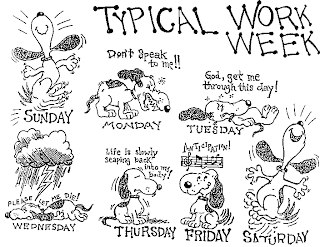 TYPICAL WORK
WEEK
SUNDAY
Don't Speak
to me!!
MONDAY
God, get me
through this day!
TUESDAY
PLEASE LET ME DIE!
WEDNESDAY
Life is slowly
seaping back
into my
body!!
THURSDAY
ANTICIPATION!
FRIDAY
SATURDAY